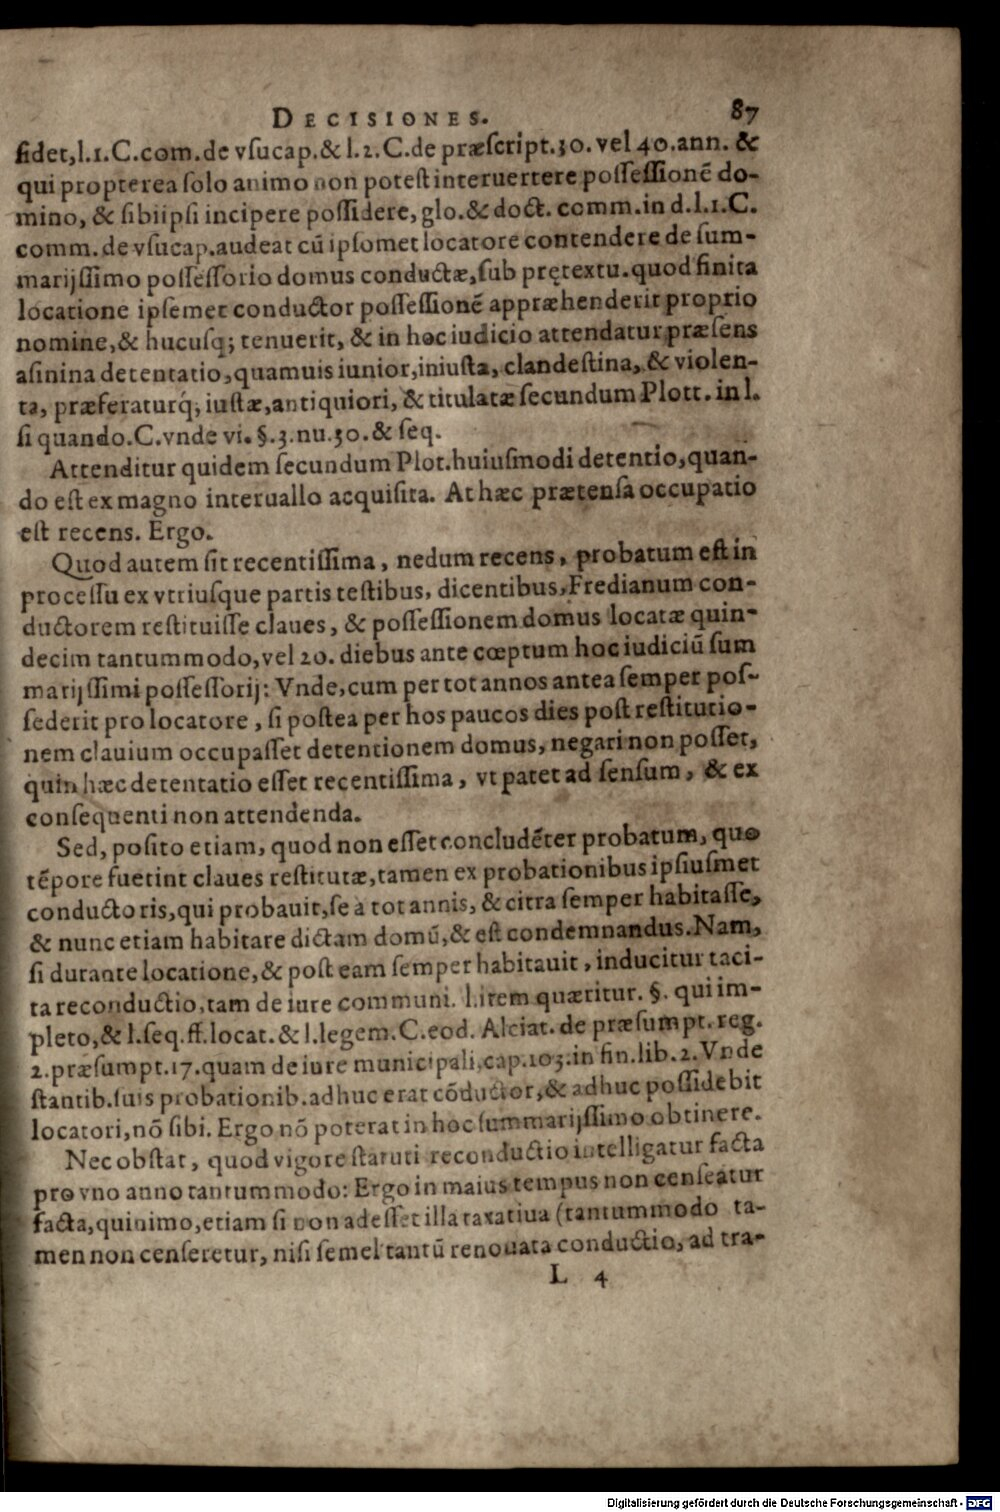 DECISIONES. 87
ſidet,l.1.C.com.de vſucap.& l.2.C.de præſcript.30.vel 40.ann. &
qui propterea ſolo animo non poteſt interuertere poſſeſſionẽ do-
mino, & ſibiipſi incipere poſſidere, glo.& doct. comm.in d.l.1.C.
comm.de vſucap.audeat cũ ipſomet locatore contendere de ſum-
marijſſimo poſſeſſorio domus conductæ,ſub prętextu.quod finita
locatione ipſemet conductor poſſeſſionẽ appræhenderit proprio
nomine,& hucuſq; tenuerit, & in hoc iudicio attendatur præſens
aſinina detentatio,quamuis iunior,iniuſta, clandeſtina, & violen-
ta, præferaturq́; iuſtæ,antiquiori, & titulatæ ſecundum Plott. in l.
ſi quando.C.vnde vi. §.3.nu.30.& ſeq.
Attenditur quidem ſecundum Plot.huiuſmodi detentio,quan-
do eſt ex magno interuallo acquiſita. At hæc prætenſa occupatio
eſt recens. Ergo.
Quod autem ſit recentiſſima, nedum recens, probatum eſt in
proceſſu ex vtriuſque partis teſtibus, dicentibus,Fredianum con-
ductorem reſtituiſſe claues, & poſſeſſionem domus locatæ quin-
decim tantummodo,vel 20. diebus ante cœptum hoc iudiciũ ſum
marijſſimi poſſeſſorij: Vnde,cum per tot annos antea ſemper poſ-
ſederit pro locatore, ſi poſtea per hos paucos dies poſt reſtitutio-
nem clauium occupaſſet detentionem domus, negari non poſſet,
quin hæc detentatio eſſet recentiſſima, vt patet ad ſenſum, & ex
conſequenti non attendenda.
Sed, poſito etiam, quod non eſſet concludẽter probatum, quo
tẽpore fuerint claues reſtitutæ,tamen ex probationibus ipſiuſmet
conductoris,qui probauit,ſe à tot annis, & citra ſemper habitaſſe,
& nunc etiam habitare dictam domũ,& eſt condemnandus.Nam,
ſi durante locatione,& poſt eam ſemper habitauit, inducitur taci-
ta reconductio,tam de iure communi. l.item quæritur. §. qui im-
pleto,& l.ſeq.ff.locat.& l.legem.C.eod. Alciat. de præſumpt.reg.
2.præſumpt.17.quam de iure municipali,cap.103.in fin.lib.2.Vnde
ſtantib.ſuis probationib.adhuc erat cõductor,& adhuc poſſidebit
locatori,nõ ſibi. Ergo nõ poterat in hoc ſummarijſſimo obtinere.
Nec obſtat, quod vigore ſtatuti reconductio intelligatur facta
pro vno anno tantummodo: Ergo in maius tempus non cenſeatur
facta,quinimo,etiam ſi non adeſſet illa taxatiua (tantummodo ta-
men non cenſeretur, niſi ſemel tantũ renouata conductio, ad tra-
L 4
Digitalisierung gefördert durch die Deutsche Forschungsgemeinschaft - DFG